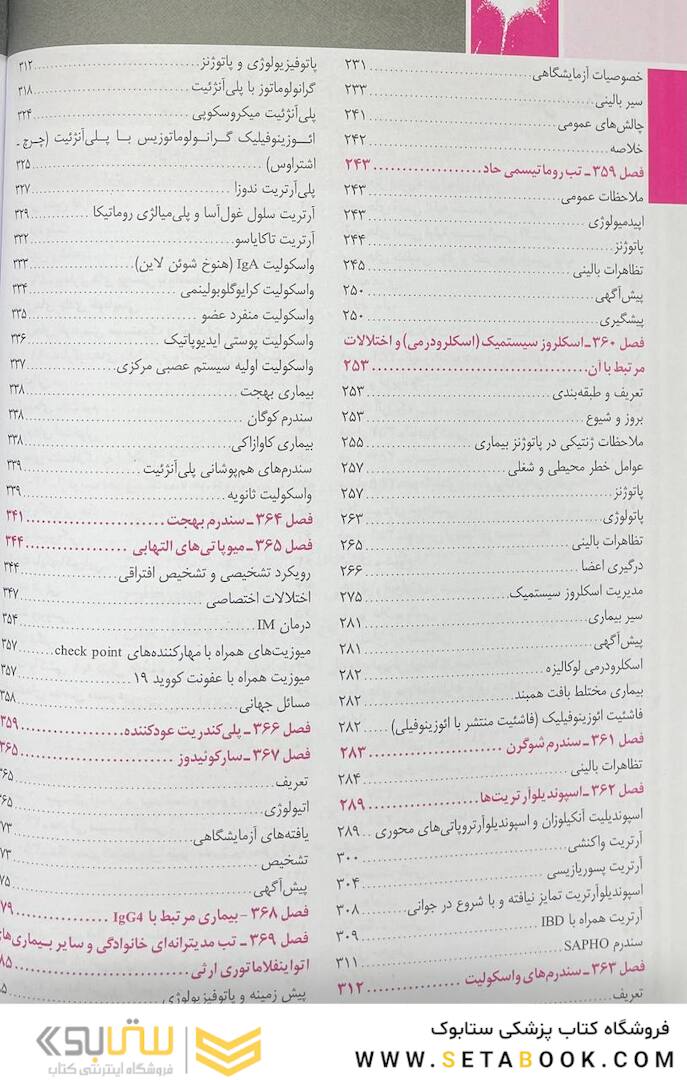 خصوصیات آزمایشگاهی ۲۳۱
سیر بالینی ۲۳۳
چالش‌های عمومی ۲۴۱
خلاصه ۲۴۲
فصل ۳۵۹ ـ تب روماتیسمی حاد ۲۴۳
ملاحظات عمومی ۲۴۳
اپیدمیولوژی ۲۴۳
پاتوژنز ۲۴۴
تظاهرات بالینی ۲۴۵
پیش‌آگهی ۲۵۰
پیشگیری ۲۵۰
فصل ۳۶۰ ـ اسکلروز سیستمیک (اسکلرودرمی) و اختلالات
مرتبط با آن ۲۵۳
تعریف و طبقه‌بندی ۲۵۳
بروز و شیوع ۲۵۳
ملاحظات ژنتیکی در پاتوژنز بیماری ۲۵۵
عوامل خطر محیطی و شغلی ۲۵۷
پاتوژنز ۲۵۷
پاتولوژی ۲۶۳
تظاهرات بالینی ۲۶۵
درگیری اعضا ۲۶۶
مدیریت اسکلروز سیستمیک ۲۷۵
سیر بیماری ۲۸۱
پیش‌آگهی ۲۸۱
اسکلرودرمی لوکالیزه ۲۸۲
بیماری مختلط بافت همبند ۲۸۲
فاشئیت ائوزینوفیلیک (فاشئیت منتشر با ائوزینوفیلی) ۲۸۲
فصل ۳۶۱ ـ سندرم شوگرن ۲۸۳
تظاهرات بالینی ۲۸۴
فصل ۳۶۲ ـ اسپوندیلوآرتریت‌ها ۲۸۹
اسپوندیلیت آنکیلوزان و اسپوندیلوآرتروپاتی‌های محوری ۲۸۹
آرتریت واکنشی ۳۰۰
آرتریت پسوریازیسی ۳۰۴
اسپوندیلوآرتریت تمایز نیافته و با شروع در جوانی ۳۰۸
آرتریت همراه با IBD ۳۰۹
سندرم SAPHO ۳۱۱
فصل ۳۶۳ ـ سندرم‌های واسکولیت ۳۱۲
تعریف
پاتوفیزیولوژی و پاتوژنز ۳۱۲
گرانولوماتوز با پلی‌آنژئیت ۳۱۸
پلی‌آنژئیت میکروسکوپی ۳۲۴
ائوزینوفیلیک گرانولوماتوزیس با پلی‌آنژئیت (چرچ ـ
اشتراوس) ۳۲۵
پلی‌آرتریت ندوزا ۳۲۷
آرتریت سلول غول‌آسا و پلی‌میالژی روماتیکا ۳۲۹
آرتریت تاکایاسو ۳۳۲
واسکولیت IgA (هنوخ شوئن لاین) ۳۳۳
واسکولیت کرایوگلوبولینمی ۳۳۴
واسکولیت منفرد عضو ۳۳۵
واسکولیت پوستی ایدیوپاتیک ۳۳۶
واسکولیت اولیه سیستم عصبی مرکزی ۳۳۷
بیماری بهجت ۳۳۸
سندرم کوگان ۳۳۸
بیماری کاوازاکی ۳۳۸
سندرم‌های هم‌پوشانی پلی‌آنژئیت ۳۳۹
واسکولیت ثانویه ۳۳۹
فصل ۳۶۴ ـ سندرم بهجت ۳۴۱
فصل ۳۶۵ ـ میوپاتی‌های التهابی ۳۴۴
رویکرد تشخیصی و تشخیص افتراقی ۳۴۴
اختلالات اختصاصی ۳۴۷
درمان IM ۳۵۴
میوزیت‌های همراه با مهارکننده‌های check point ۳۵۷
میوزیت همراه با عفونت کووید ۱۹ ۳۵۷
مسائل جهانی ۳۵۸
فصل ۳۶۶ ـ پلی‌کندریت عودکننده ۳۵۹
فصل ۳۶۷ ـ سارکوئیدوز ۳۶۵
تعریف ۳۶۵
اتیولوژی ۳۶۵
یافته‌های آزمایشگاهی ۷۳
تشخیص ۷۳
پیش‌آگهی ۷۵
فصل ۳۶۸ - بیماری مرتبط با IgG4 ۷۹
فصل ۳۶۹ ـ تب مدیترانه‌ای خانوادگی و سایر بیماری‌های
اتواینفلاماتوری ارثی ۸۵
پیش زمینه و پاتوفیزیولوژی
فروشگاه کتاب پزشکی ستابوک
WWW.SETABOOK.COM
ستابوک
فروشگاه اینترنتی کتاب